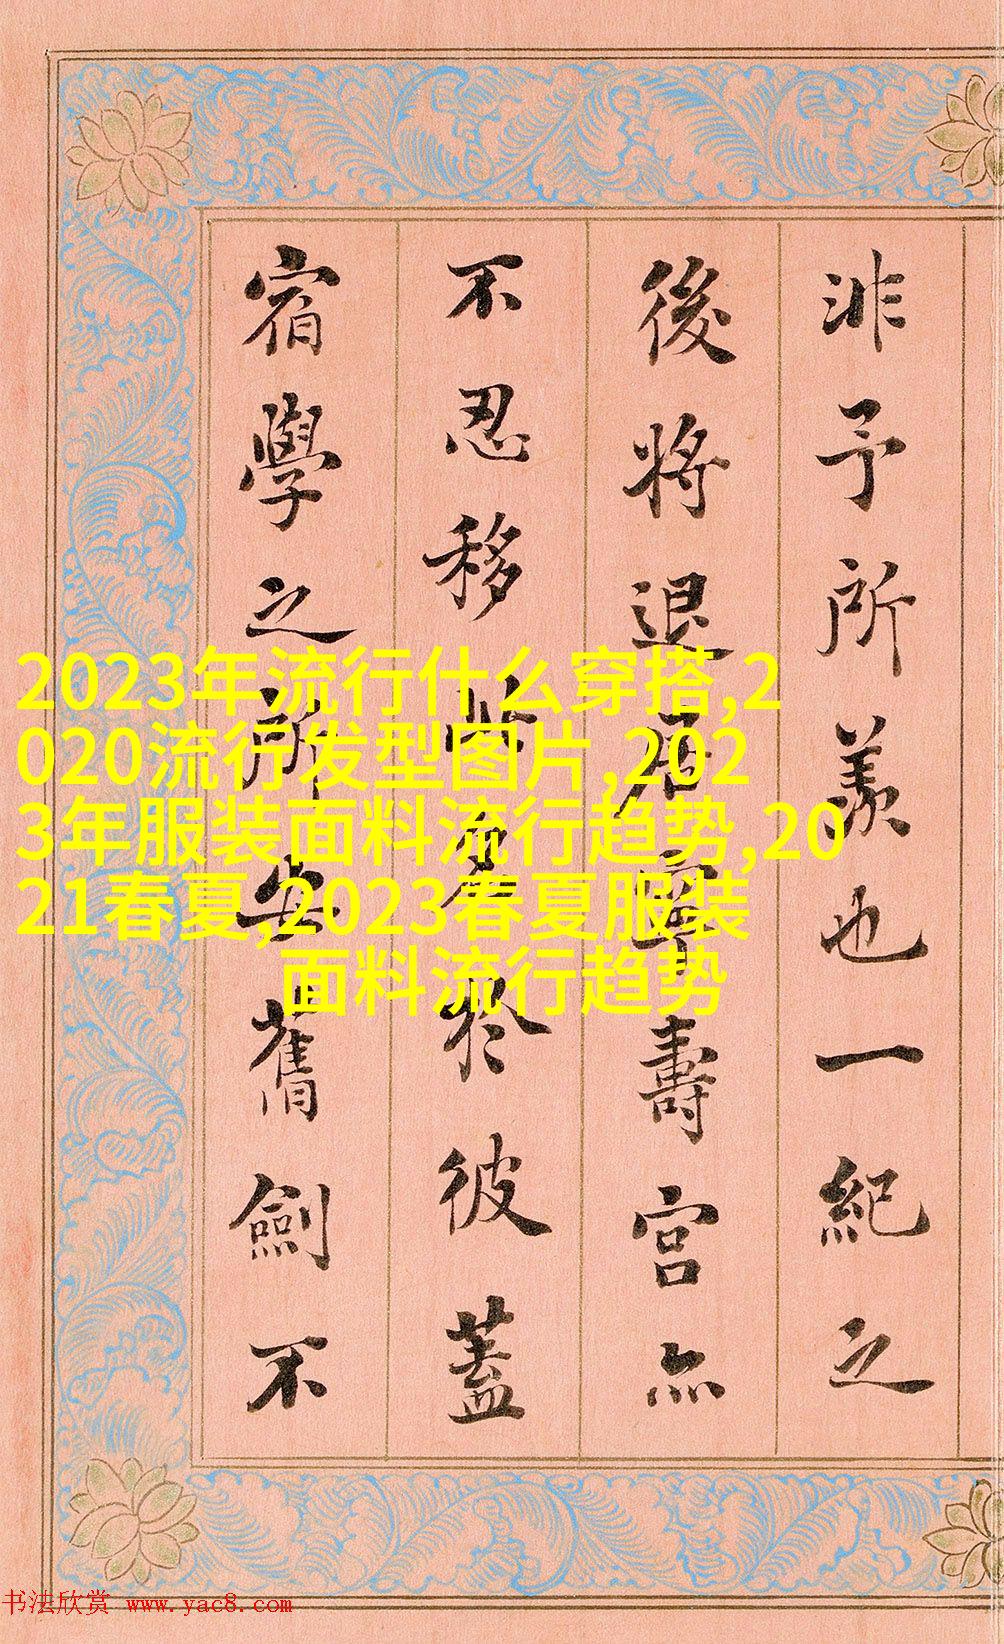 非予所羨也一紀之
後將退居寧壽宮亦
不忍移此名於彼蓋
宿學之所安舊劍不
2023年流行什么穿搭,2
020流行发型图片,202
3年服装面料流行趋势,20
21春夏,2023春夏服装
面料流行趋势
书法欣赏 www.yac8.com